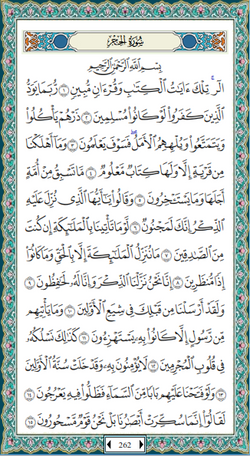 سُورَةُ الحِجْرِ
بِسْمِ اللَّهِ الرَّحْمَٰنِ الرَّحِيمِ
الٓر ۚ تِلْكَ ءَايَٰتُ الْكِتَٰبِ وَقُرْءَانٍ مُّبِينٍ ١ رُّبَمَا يَوَدُّ
الَّذِينَ كَفَرُوا لَوْ كَانُوا مُسْلِمِينَ ٢ ذَرْهُمْ يَأْكُلُوا
وَيَتَمَتَّعُوا وَيُلْهِهِمُ الْأَمَلُ ۖ فَسَوْفَ يَعْلَمُونَ ٣ وَمَا أَهْلَكْنَا
مِن قَرْيَةٍ إِلَّا وَلَهَا كِتَابٌ مَّعْلُومٌ ٤ مَّا تَسْبِقُ مِنْ أُمَّةٍ
أَجَلَهَا وَمَا يَسْتَـْٔخِرُونَ ٥ وَقَالُوا يَٰٓأَيُّهَا الَّذِي نُزِّلَ عَلَيْهِ
الذِّكْرُ إِنَّكَ لَمَجْنُونٌ ٦ لَّوْ مَا تَأْتِينَا بِالْمَلَٰٓئِكَةِ إِن كُنتَ
مِنَ الصَّٰدِقِينَ ٧ مَا نُنَزِّلُ الْمَلَٰٓئِكَةَ إِلَّا بِالْحَقِّ وَمَا كَانُوا
إِذًا مُّنظَرِينَ ٨ إِنَّا نَحْنُ نَزَّلْنَا الذِّكْرَ وَإِنَّا لَهُ لَحَٰفِظُونَ ٩
وَلَقَدْ أَرْسَلْنَا مِن قَبْلِكَ فِي شِيَعِ الْأَوَّلِينَ ١٠ وَمَا يَأْتِيهِم
مِّن رَّسُولٍ إِلَّا كَانُوا بِهِ يَسْتَهْزِءُونَ ١١ كَذَٰلِكَ نَسْلُكُهُ
فِي قُلُوبِ الْمُجْرِمِينَ ١٢ لَا يُؤْمِنُونَ بِهِ ۖ وَقَدْ خَلَتْ سُنَّةُ الْأَوَّلِينَ
١٣ وَلَوْ فَتَحْنَا عَلَيْهِم بَابًا مِّنَ السَّمَاءِ فَظَلُّوا فِيهِ يَعْرُجُونَ ١٤
لَقَالُوا إِنَّمَا سُكِّرَتْ أَبْصَٰرُنَا بَلْ نَحْنُ قَوْمٌ مَّسْحُورُونَ ١٥
262